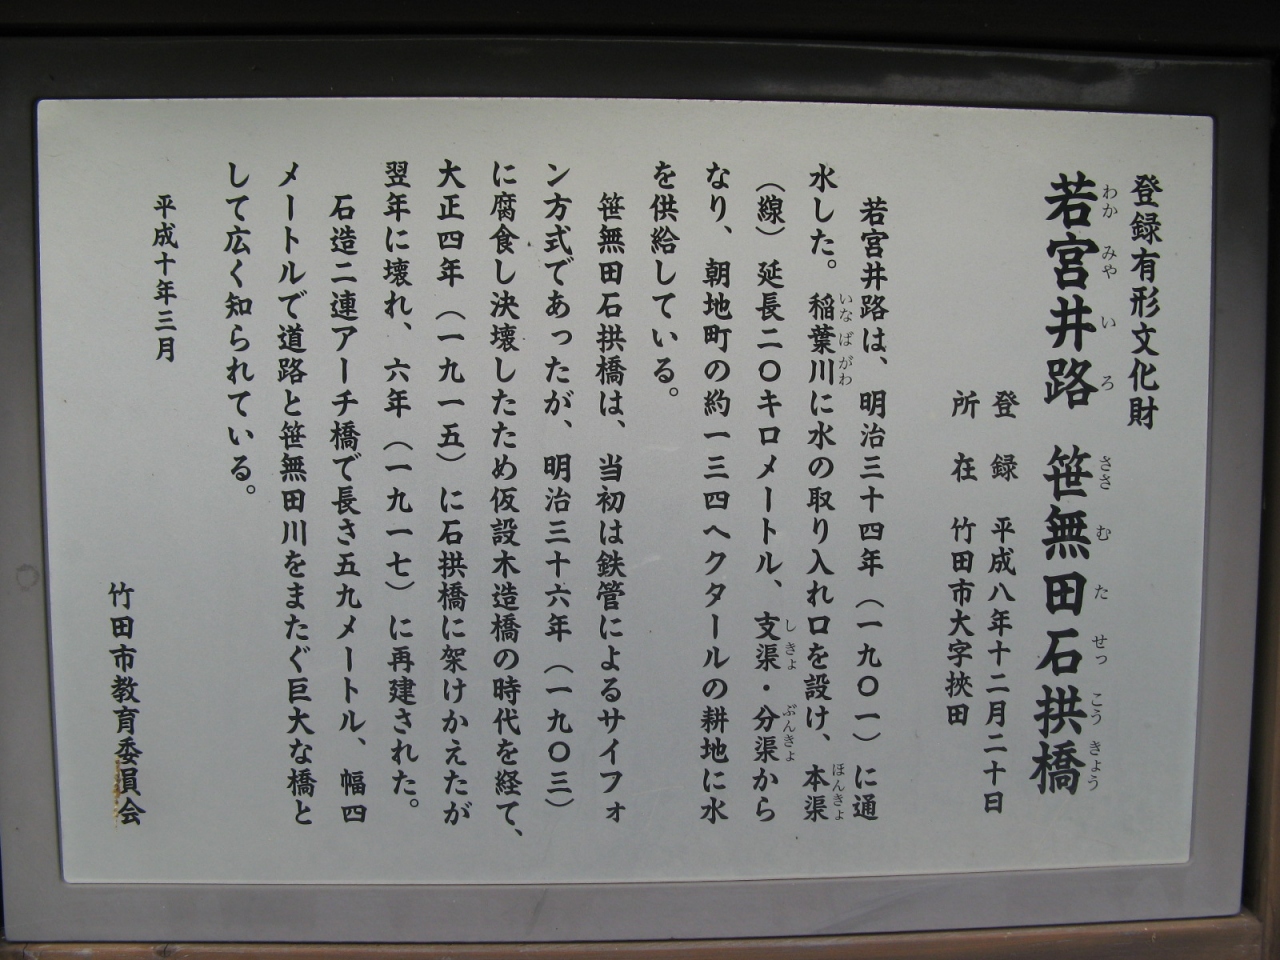 登録有形文化財
若宮井路 笹無田石拱橋
わか みや い ろ ささ む た せっ こう きょう
登録 平成八年十二月二十日
所在 竹田市大字挾田
若宮井路は、明治三十四年（一九〇一）に通
水した。稲葉川に水の取り入れ口を設け、本渠
いなばがわ ほんきょ
（線）延長二〇キロメートル、支渠・分渠から
しきょ ぶんきょ
なり、朝地町の約一三四ヘクタールの耕地に水
を供給している。
笹無田石拱橋は、当初は鉄管によるサイフォ
ン方式であったが、明治三十六年（一九〇三）
に腐食し決壊したため仮設木造橋の時代を経て、
大正四年（一九一五）に石拱橋に架けかえたが
翌年に壊れ、六年（一九一七）に再建された。
石造二連アーチ橋で長さ五九メートル、幅四
メートルで道路と笹無田川をまたぐ巨大な橋と
して広く知られている。
平成十年三月
竹田市教育委員会